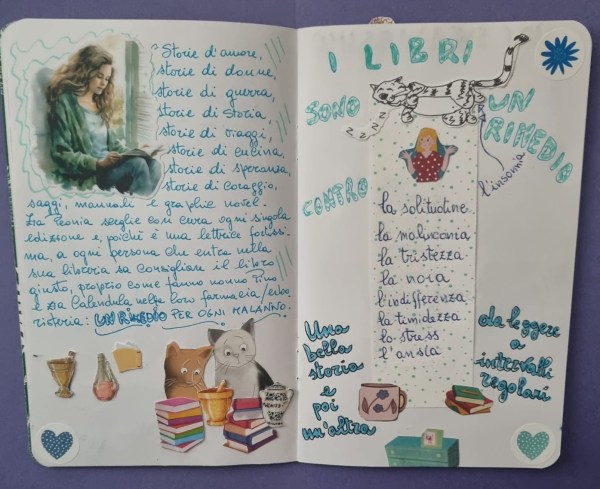 Storie d'amore,
storie di donne,
storie di guerra,
storie di storia,
storie di viaggi,
storie di cucina,
storie di speranza,
storie di coraggio,
saggi, manuali e graphic novel.
La Peonia sceglie così cura ogni singola
edizione e, poiché è una lettrice fortissi-
ma, a ogni persona che entra nella
sua libreria sa consigliare il libro
giusto, proprio come fanno nonno Pino
e zia Calendula nella loro farmacia/erbo
risteria: UN RIMEDIO PER OGNI MALANNO.
I LIBRI
SONO
UN
RIMEDIO
CONTRO
z z z z
l'insonnia
la solitudine
la malinconia
la tristezza
la noia
l'indifferenza
la timidezza
lo stress
l'ansia
Una
bella
storia
e
poi
un'altra
da leggere
a
intervalli
regolari